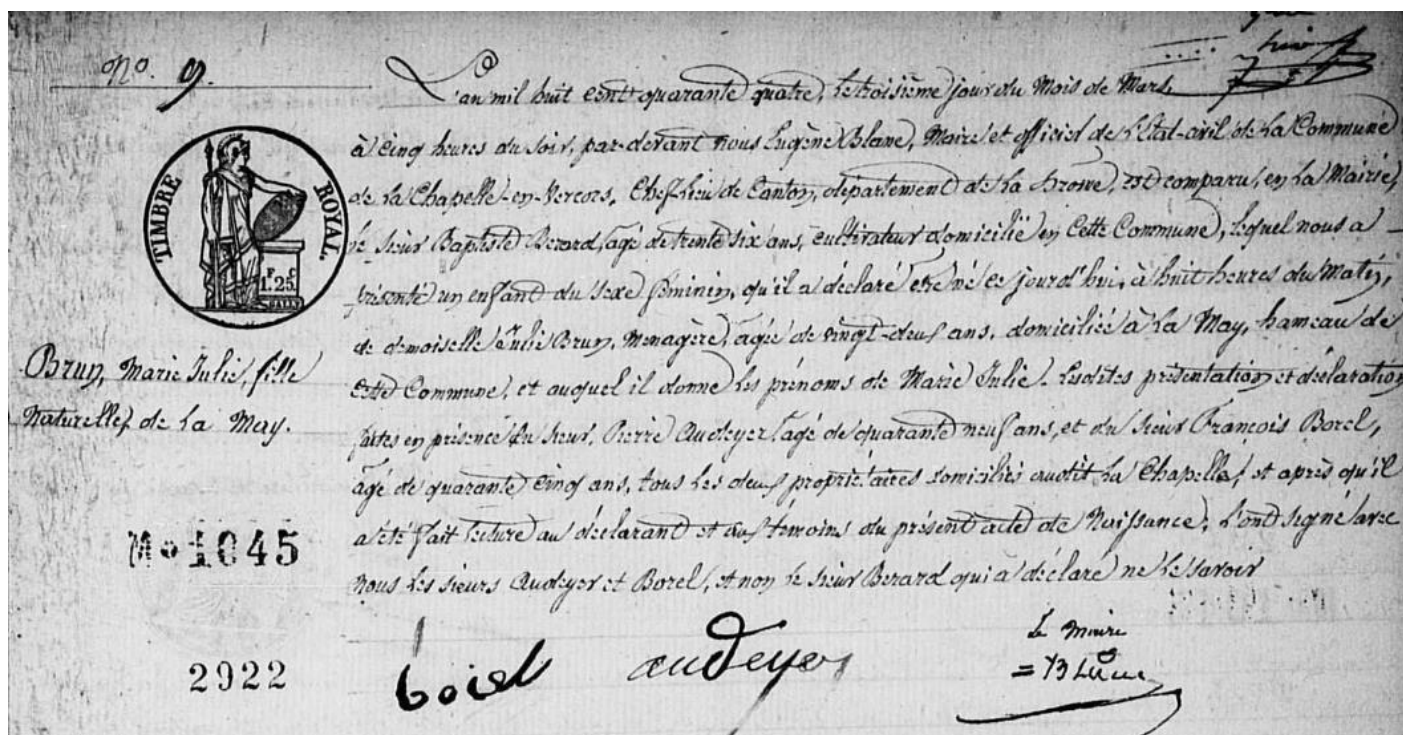 N.º 9.
L'an mil huit cent quarante quatre, le troisième jour du Mois de Mars,
à cinq heures du soir, par-devant nous Eugène Blanc, Maire et officier de l'Etat-civil de la Commune
de la Chapelle-en-Vercors, Chef-lieu de Canton, département de la Drome, est comparu, en la Mairie,
le sieur Baptiste Berard, agé de trente six ans, cultivateur domicilié en cette Commune, lequel nous a
présenté un enfant du sexe féminin, qu'il a déclaré etre né ce jourd'hui, à huit heures du Matin,
de demoiselle Julie Brun, Menagère, agée de vingt-deux ans, domiciliée à La May, hameau de
cette Commune, et auquel il donne les prénoms de Marie Julie. Lesdites présentation et déclaration
faites en présence du sieur Pierre Audeyer agé de quarante neuf ans, et du sieur François Borel,
agé de quarante cinq ans, tous les deux propriétaires domiciliés audit La Chapelle, et après qu'il
a été fait lecture au déclarant et aux témoins du présent acte de Naissance, l'ont signé avec
nous les sieurs Audeyer et Borel, et non le sieur Berard qui a déclaré ne le savoir
TIMBRE ROYAL.
F. C
1.25
Brun, Marie Julie, fille
Naturelle, de La May.
1045
2922
borel
audeyer
Le Maire
= Blanc